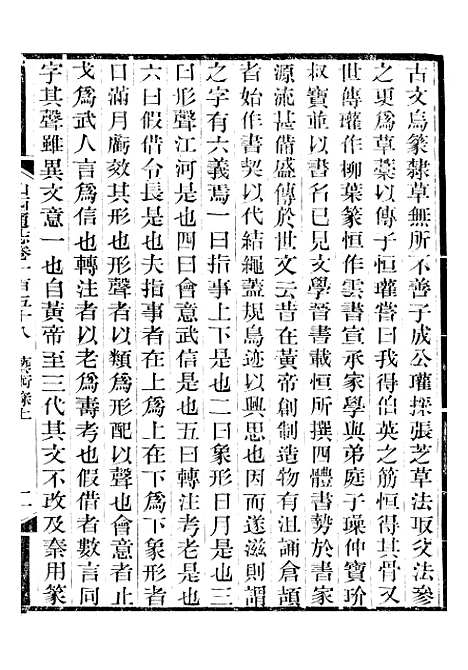 古文鳥篆隸草無所不善子成公瓘採張芝草法取父法參
之更為草藁以傳子恒瓘嘗曰我得伯英之筋恒得其骨又
世傳瓘作柳葉篆恒作雲書宣承家學與弟庭子璪仲寶玠
叔寶並以書名已見文學晉書載恒所撰四體書勢於書家
源流甚備盛傳於世文云昔在黃帝創制造物有沮誦倉頡
者始作書契以代結繩蓋覩鳥迹以興思也因而遂滋則謂
之字有六義焉一曰指事上下是也二曰象形日月是也三
曰形聲江河是也四曰會意武信是也五曰轉注考老是也
六曰假借令長是也夫指事者在上為上在下為下象形者
日滿月虧效其形也形聲者以類為形配以聲也會意者止
戈為武人言為信也轉注者以老為壽考也假借者數言同
字其聲雖異文意一也自黃帝至三代其文不改及秦用篆
山西通志卷一百五十八 藝術錄上 二